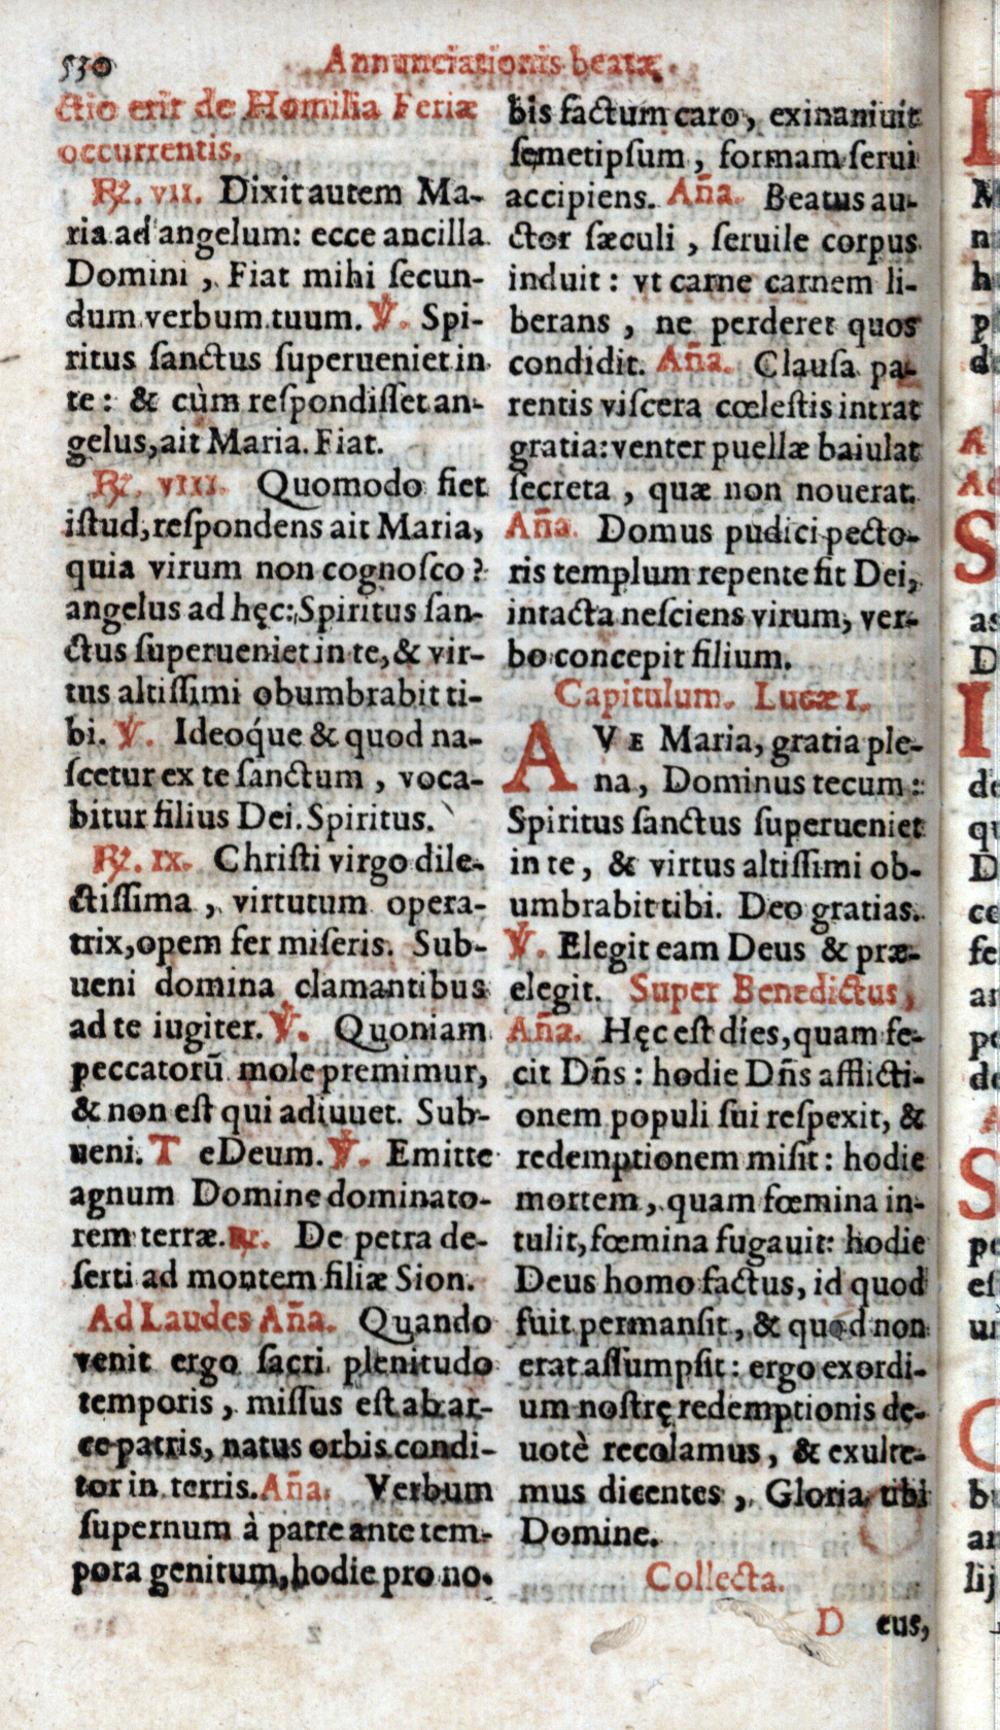 530
Annunciationis beatæ.
ctio erit de Homilia Feriæ
occurrentis.
℟. vii. Dixit autem Ma-
ria ad angelum: ecce ancilla
Domini, Fiat mihi ſecun-
dum verbum tuum. ℣. Spi-
ritus ſanctus ſuperueniet in
te: & cùm reſpondiſſet an-
gelus, ait Maria. Fiat.
℟. viii. Quomodo fiet
iſtud, reſpondens ait Maria,
quia virum non cognoſco?
angelus ad hęc: Spiritus ſan-
ctus ſuperueniet in te, & vir-
tus altiſſimi obumbrabit ti-
bi. ℣. Ideoq́ue & quod na-
ſcetur ex te ſanctum, voca-
bitur filius Dei. Spiritus.
℟. ix. Chriſti virgo dile-
ctiſſima, virtutum opera-
trix, opem fer miſeris. Sub-
ueni domina clamantibus
ad te iugiter. ℣. Quoniam
peccatorũ mole premimur,
& non eſt qui adiuuet. Sub-
ueni. T e Deum. ℣. Emitte
agnum Domine dominato-
rem terræ. ℟. De petra de-
ſerti ad montem filiæ Sion.
Ad Laudes Aña. Quando
venit ergo ſacri plenitudo
temporis, miſſus eſt ab ar-
ce patris, natus orbis condi-
tor in terris. Aña. Verbum
ſupernum à patre ante tem-
pora genitum, hodie pro no-
bis factum caro, exinaniuit
ſemetipſum, formam ſerui
accipiens. Aña. Beatus au-
ctor ſæculi, ſeruile corpus
induit: vt carne carnem li-
berans, ne perderet quos
condidit. Aña. Clauſa pa-
rentis viſcera cœleſtis intrat
gratia: venter puellæ baiulat
ſecreta, quæ non nouerat.
Aña. Domus pudici pecto-
ris templum repente fit Dei,
intacta neſciens virum, ver-
bo concepit filium.
Capitulum. Lucæ 1.
A VE Maria, gratia ple-
na, Dominus tecum:
Spiritus ſanctus ſuperueniet
in te, & virtus altiſſimi ob-
umbrabit tibi. Deo gratias.
℣. Elegit eam Deus & præ-
elegit. Super Benedictus,
Aña. Hęc eſt dies, quam fe-
cit Dñs: hodie Dñs afflicti-
onem populi ſui reſpexit, &
redemptionem miſit: hodie
mortem, quam fœmina in-
tulit, fœmina fugauit: hodie
Deus homo factus, id quod
fuit permanſit, & quod non
erat aſſumpſit: ergo exordi-
um noſtrę redemptionis de-
uotè recolamus, & exulte-
mus dicentes, Gloria tibi
Domine.
Collecta.
D eus,